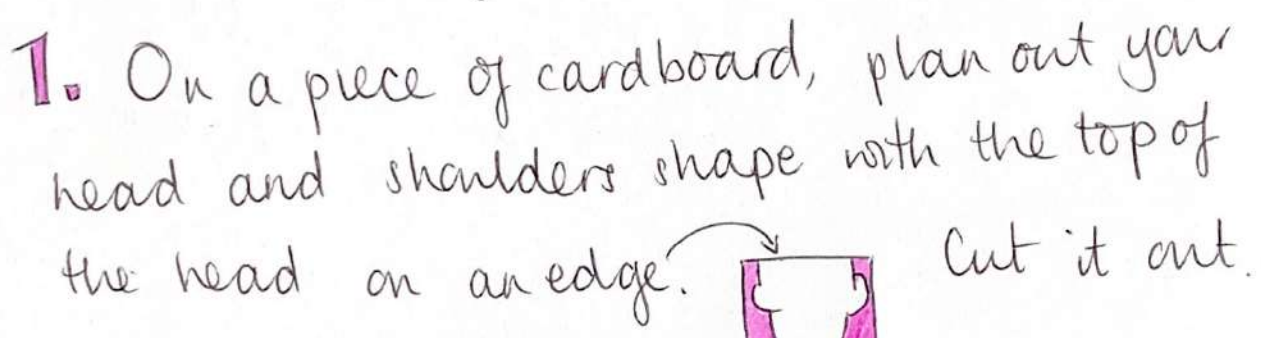 1. On a piece of cardboard, plan out your
head and shoulders shape with the top of
the head on an edge. Cut it out.